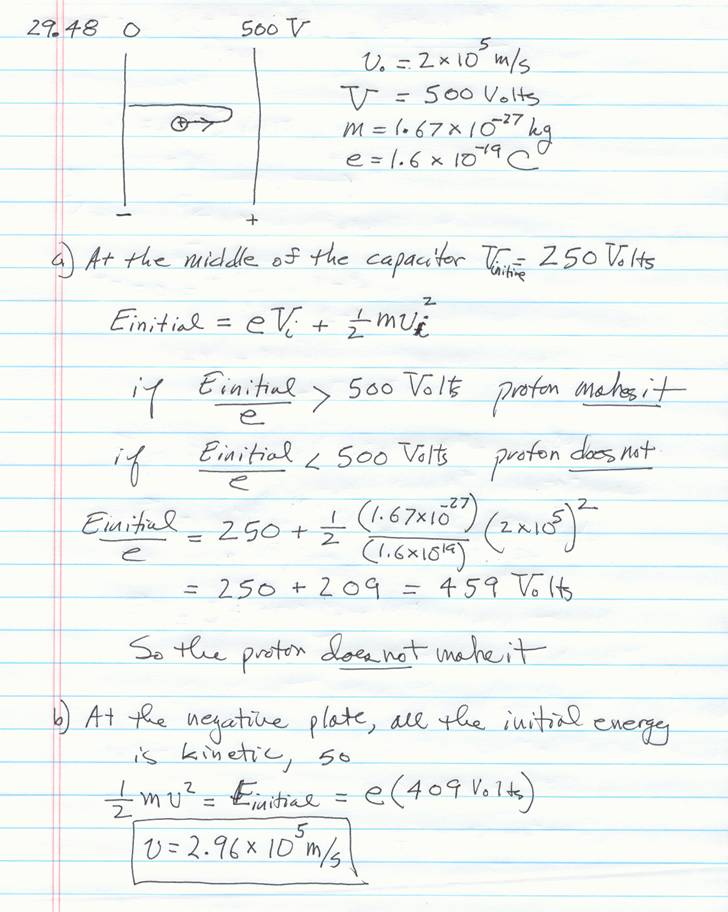 29.48 0 500 V
v₀ = 2 × 10⁵ m/s
V = 500 Volts
m = 1.67 × 10⁻²⁷ kg
e = 1.6 × 10⁻¹⁹ C
⊕→
− +
a) At the middle of the capacitor V_initial = 250 Volts
Einitial = eVᵢ + ½mvᵢ²
if Einitial/e > 500 Volts proton makes it
if Einitial/e < 500 Volts proton does not
Einitial/e = 250 + ½ (1.67×10⁻²⁷)/(1.6×10¹⁹) (2×10⁵)²
= 250 + 209 = 459 Volts
So the proton does not make it
b) At the negative plate, all the initial energy
is kinetic, so
½mv² = Einitial = e(409 Volts)
v = 2.96 × 10⁵ m/s